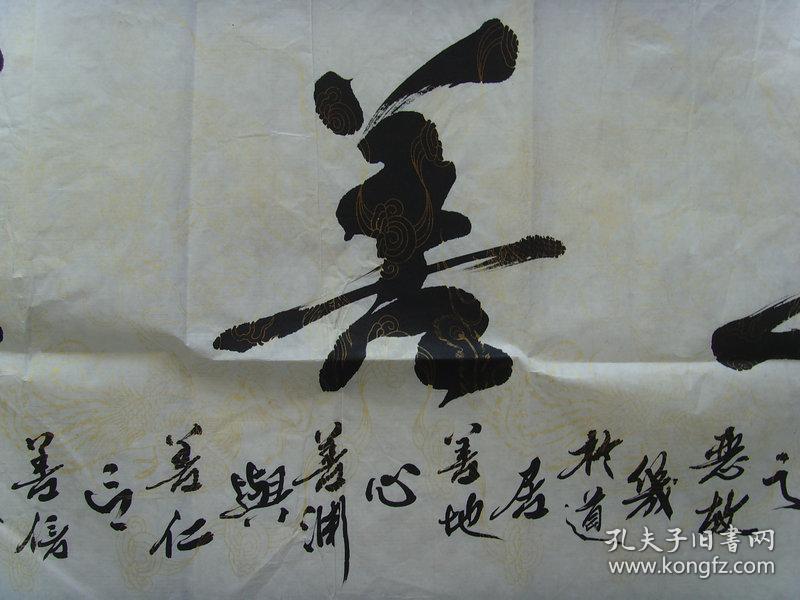 善
之
惡故
幾
於道
居
善地
心
善淵
與
善仁
言
善信
孔夫子旧书网
www.kongfz.com